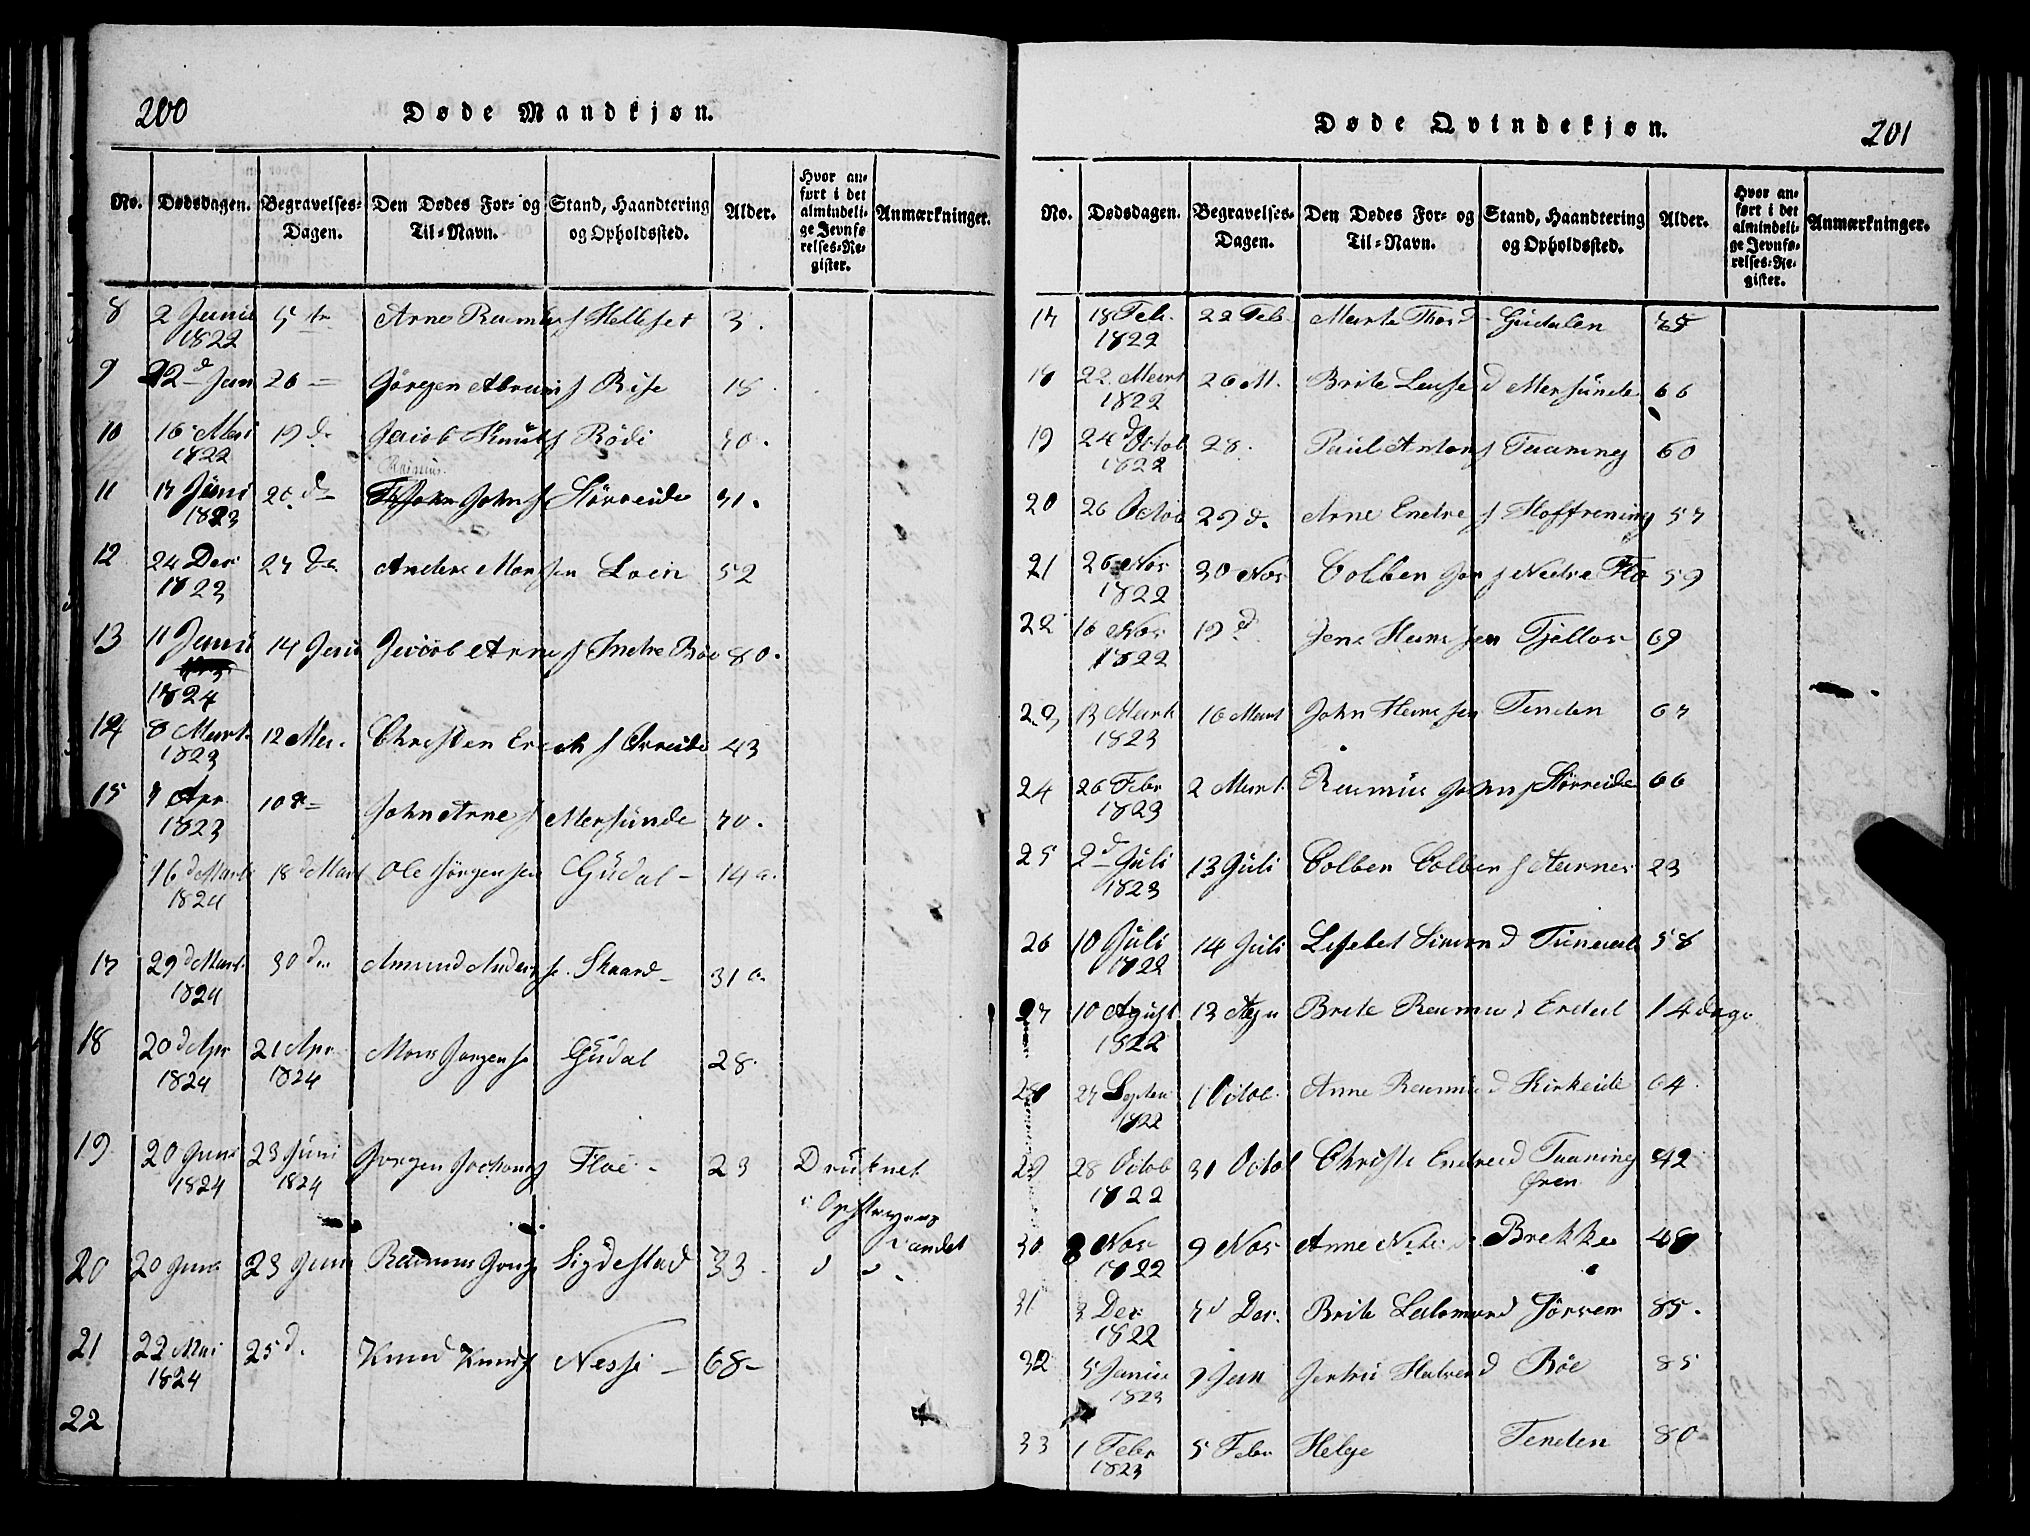 200
Døde Mandkjøn.
No. Dødsdagen. Begravelses-Dagen. Den Dødes For- og Til-Navn. Stand, Haandtering og Opholdssted. Alder. Hvor anført i det almindelige Jevnførelses-Register. Anmærkninger.
8 2 Janu 1822 5 Arne Rasmus s Helleset 3.
9 22 d Jan 26 Jørgen Abram s Rise 18
10 16 Mai 1822 19 d Jacob Knut s Rödi 30.
Rasmus
11 17 Juni 1823 20 d John s Störreide 31.
12 24 Dec 1823 27 d Anders Mons sen Loen 52
13 11 Janu 1824 14 Janu Jacob Arne s Indre Böe 80.
14 8 Mart. 1823 12 Mar. Christen Erich s Orreide 43
15 7 Apr 1823 10 d John Arne s Mersunde 70.
16 d Marti 1824 18 d Mart Ole Jörgensen Gudal 14 a.
17 29 d Mart. 1824 30 d Amund Anders s. Skaard 31 a
18 20 d Apr 1824 21 Apr 1824 Mons Jorgens Gudal 28.
19 20 Juni 1824 23 Juni 1824 Jorgen Jochums Floe 23 Druknet i Opstryns Vandet
20 20 Juni 23 Juni Rasmus Jons Sigdestad 33 d
21 22 Mai 1824 25 d. Knud Knuds Nesse 68
22
Døde Qvindekjøn.
201
No. Dødsdagen. Begravelses-Dagen. Den Dødes For- og Til-Navn. Stand, Haandtering og Opholdssted. Alder. Hvor anført i det almindelige Jevnførelses-Register. Anmærkninger.
17 18 Feb. 1822 22 Feb. Marte Thos d Gudalen
18 22 Mart 1822 26 M. Brite Lasse d Mersunde 66
19 24 d Octob 1822 28. Paul Anton s Taaning 60
20 26 Octob 29 d. Arne Endre s Hoffrening 57
21 26 Nov 1822 30 Nov Colben Jon s Nedre Flo 59
22 16 Nov 1822 19 d. Jens Hans sen Tjellos 69
23 13 Mart 1823 16 Mart John Hans sen Tenden 67
24 26 Febr 1823 2 Mart. Rasmus John s Störreide 66
25 2 d Juli 1823 13 Juli Colben Colben s Aarnes 23
26 10 Juli 1822 14 Juli Lisebet Simon d Tuneval 58
27 10 Agust 1822 13 Agu Brite Rasmus d Erdal 14 dage
28 27 Septem 1822 1 Octob. Anne Rasmus d Kirkeide 64
29 28 Octob 1822 31 Octob Christi Endre d Taaning Ören 42
30 8 Nov 1822 9 Nov Anne Brekke 48
31 3 Dec 1822 7 d Dec. Brite Salomon d Sörvem 85.
32 5 Janu 1823 9 Jan Jertru Halvor d Böe 85
33 1 Febr 1823 5 Febr Helge Tenden 80